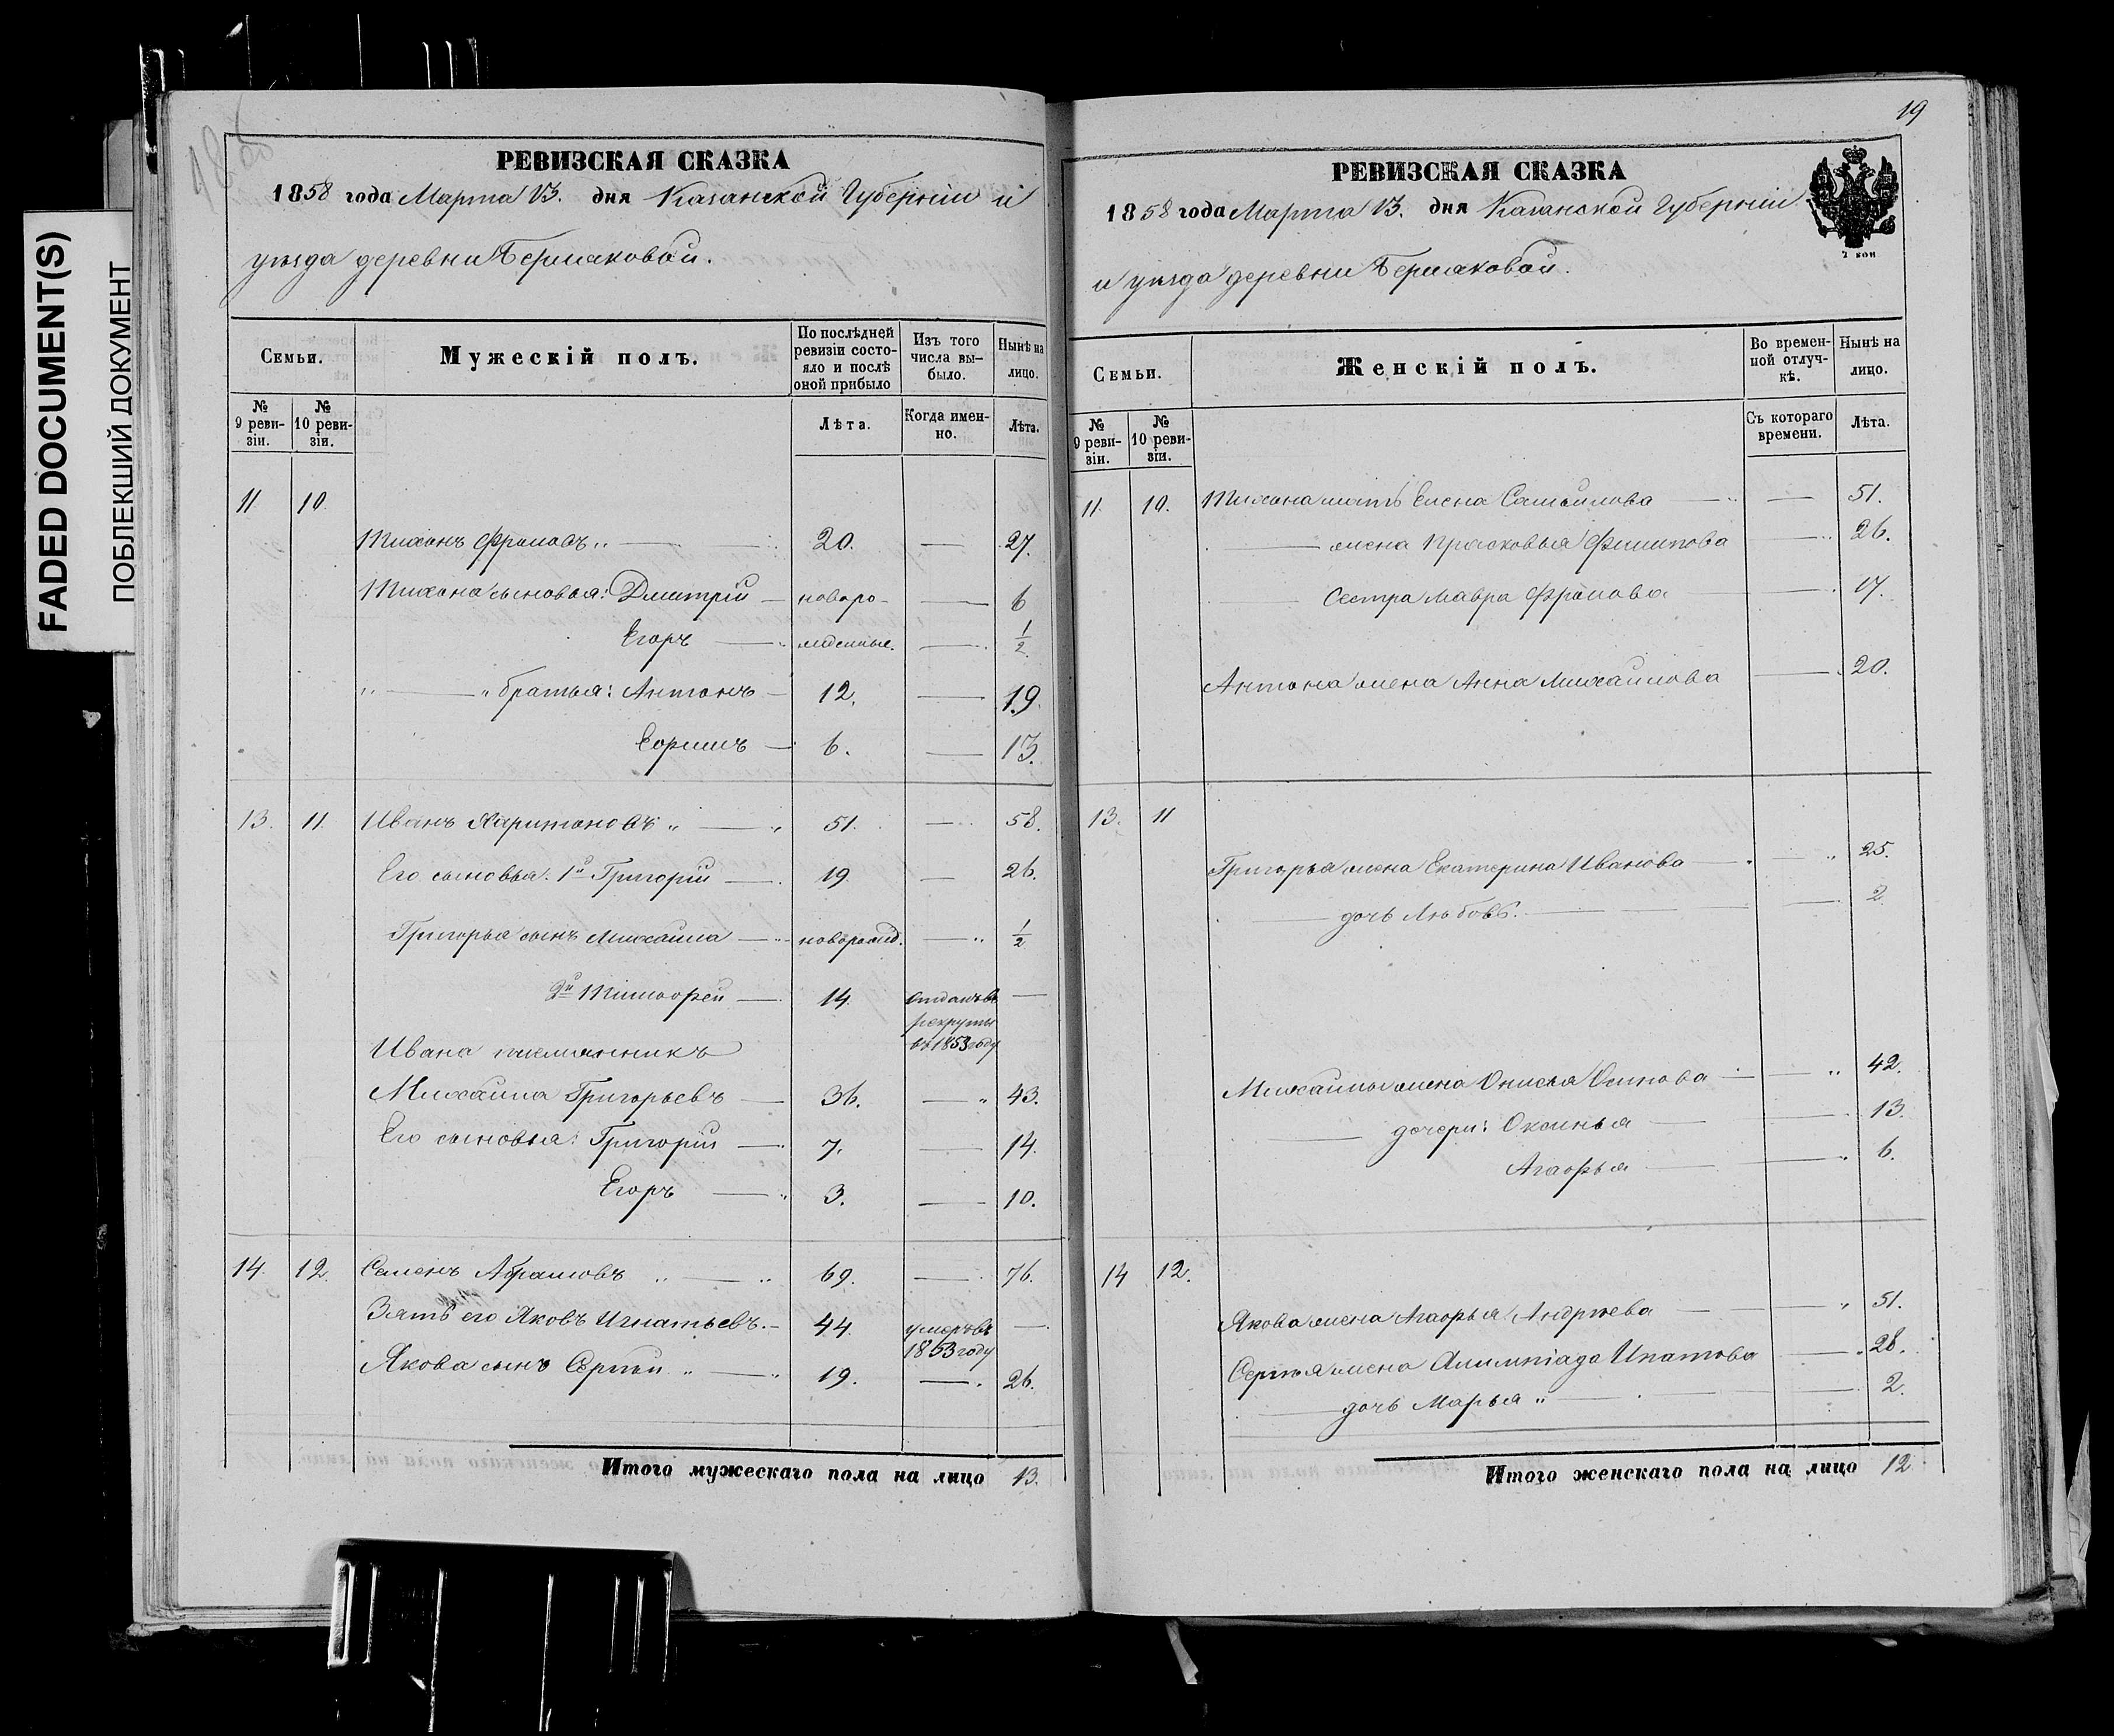 FADED DOCUMENT(S)
ПОБЛЕКШИЙ ДОКУМЕНТ
18 об
РЕВИЗСКАЯ СКАЗКА
1858 года Марта 13. дня Казанской Губерніи и
уѣзда деревни Бермяковой.
Семьи.
Мужескій полъ.
По послѣдней ревизіи состояло и послѣ оной прибыло
Изъ того числа выбыло.
Нынѣ на лицо.
№ 9 ревизіи.
№ 10 ревизіи.
Лѣта.
Когда именно.
Лѣта.
11 10.
Тихонъ Фроловъ „ — 20. — 27.
Тихона сыновья: Дмитрій — новоро- — 6
Егоръ — жденные. — 1/2
„ — „ братья: Антонъ — 12. — 19.
— 6. — 13.
13. 11. Иванъ Харитоновъ „ — „ 51. — 58.
Его сыновья: 1й Григорій — 19 — 26.
Григорья сынъ Михаила — новорожд. — „ 1/2
2й Тимофей — 14. отданъ въ —
рекруты
въ 1853 году
Ивана племянникъ
Михаила Григорьевъ — 36. — „ 43.
Его сыновья: Григорій — 7. — 14.
Егоръ — „ 3. — 10.
14. 12. Семенъ Абрамовъ „ — „ 69. — 76.
Зять его Яковъ Игнатьевъ. — 44. умеръ въ —
1853 году
Якова сынъ Сергѣй „ — „ 19. — 26.
Итого мужескаго пола на лицо 13.
19
РЕВИЗСКАЯ СКАЗКА
1858 года Марта 13. дня Казанской Губерніи
и уѣзда деревни Бермяковой.
2 коп
Семьи.
Женскій полъ.
Во временной отлучкѣ.
Нынѣ на лицо.
№ 9 ревизіи.
№ 10 ревизіи.
Съ котораго времени.
Лѣта.
11. 10. Тихона мать Елена Самойлова — — 51.
— жена Прасковья Филипова — 26.
— Сестра Мавра Фролова — 17.
Антона жена Анна Михайлова — 20.
13. 11
Григорья жена Екатерина Иванова — „ 25.
— дочь Любовь. — — 2
Михайлы жена Онисья Осипова — — „ 42.
— дочери: Оксинья — — 13.
Агафья — — „ 6.
14 12.
Якова жена Агафья Андрѣева — — „ 51.
Сергѣя жена Алимпіада Ипатова — 28.
— дочь Марья „ — — 2.
Итого женскаго пола на лицо 12